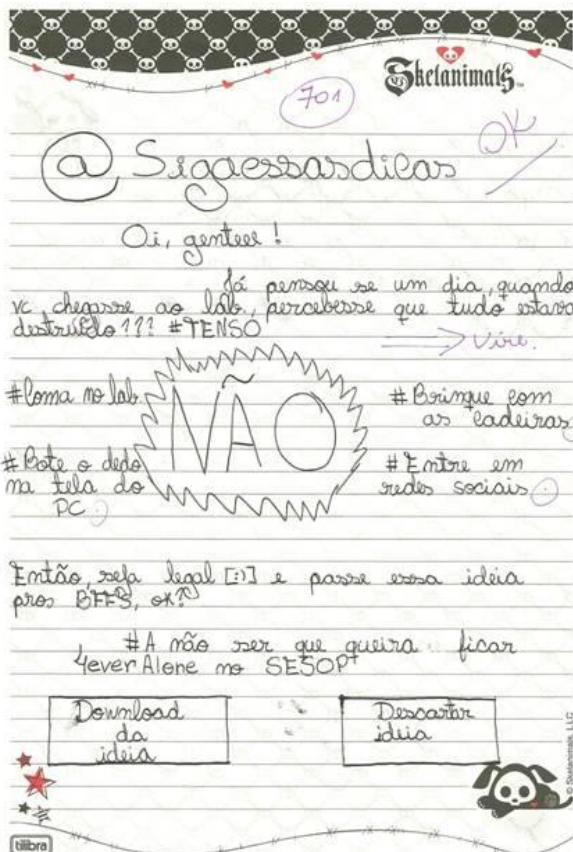 Skelanimals
701
OK
@Sigaessasdicas
Oi, genteee!
Já pensou se um dia, quando
vc chegasse ao lab., percebesse que tudo estava
destruído??? #TENSO
Vire.
NÃO
#Coma no lab.
#Brinque com
as cadeiras.
#Bote o dedo
na tela do
PC.
#Entre em
redes sociais.
Então, seja legal [:)] e passe essa idéia
pros BFFS, ok?
#A não ser que queira ficar
4ever Alone no SESOP
Download
da
idéia
Descartar
idéia
© Skelanimals, LLC
tilibra